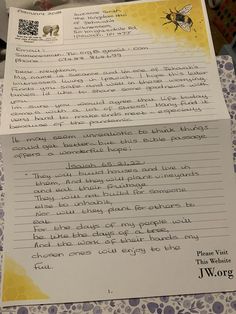 February 2021
Suzanne Smith
The Kingdom Hall
of Jehovah's
Witnesses
Ipswich IP
Email:
Phone
Dear Neighbour,
My name is Suzanne and I'm one of Jehovah's
Witnesses living in Ipswich. I hope this letter
finds you safe and well in these worrying
times. I'd like to share some good news with
you.
I'm sure you would agree that life today
comes with a lot of stress. Many find it
very hard to make ends meet - especially
because of the pandemic.
It may seem unrealistic to think things
could get better but this Bible passage
offers a wonderful hope:
Isaiah 65:21,22
They will build houses and live in
them, And they will plant vineyards
and eat their fruitage.
They will not build for someone
else to inhabit,
Nor will they plant for others to
eat.
For the days of my people will
be like the days of a tree,
And the work of their hands my
chosen ones will enjoy to the
full.
Please Visit
This Website
JW.org
1.